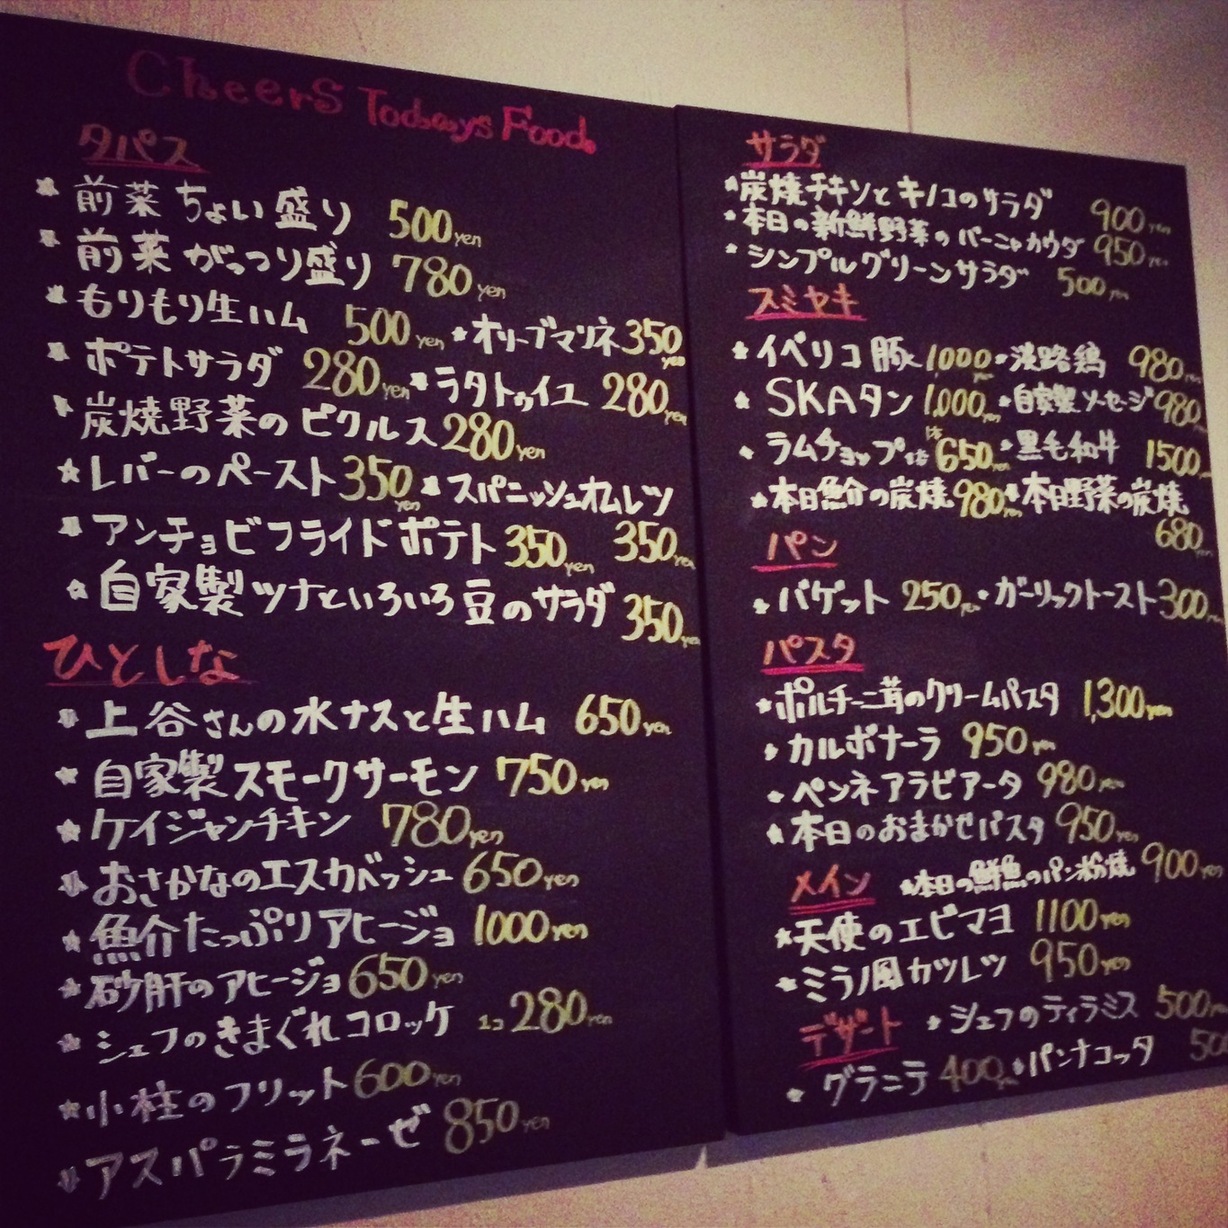 Cheers Todays Food.
タパス
★前菜ちょい盛り 500yen
★前菜がっつり盛り 780yen
★もりもり生ハム 500yen ★オリーブマリネ 350yen
★ポテトサラダ 280yen ★ラタトゥイユ 280yen
★炭焼野菜のピクルス 280yen
★レバーのペースト 350yen ★スパニッシュオムレツ
★アンチョビフライドポテト 350yen 350yen
★自家製ツナといろいろ豆のサラダ 350yen
ひとしな
★上谷さんの水ナスと生ハム 650yen
★自家製スモークサーモン 750yen
★ケイジャンチキン 780yen
★おさかなのエスカベッシュ 650yen
★魚介たっぷりアヒージョ 1000yen
★砂肝のアヒージョ 650yen
★シェフのきまぐれコロッケ 1コ 280yen
★小柱のフリット 600yen
★アスパラミラネーゼ 850yen
サラダ
★炭焼チキンとキノコのサラダ 900yen
★本日の新鮮野菜のバーニャカウダ 950yen
★シンプルグリーンサラダ 500yen
スミヤキ
★イベリコ豚 1000yen ★淡路鶏 980yen
★SKAタン 1,000yen ★自家製ソーセージ 980yen
★ラムチョップ 1本 650yen ★黒毛和牛 1500yen
★本日魚介の炭焼 980yen ★本日野菜の炭焼
680yen
パン
★バゲット 250yen ★ガーリックトースト 300yen
パスタ
★ポルチーニ茸のクリームパスタ 1,300yen
★カルボナーラ 950yen
★ペンネアラビアータ 980yen
★本日のおまかせパスタ 950yen
メイン ★本日の鮮魚のパン粉焼 900yen
★天使のエビマヨ 1100yen
★ミラノ風カツレツ 950yen
デザート ★シェフのティラミス 500yen
★グラニテ 400yen ★パンナコッタ 500